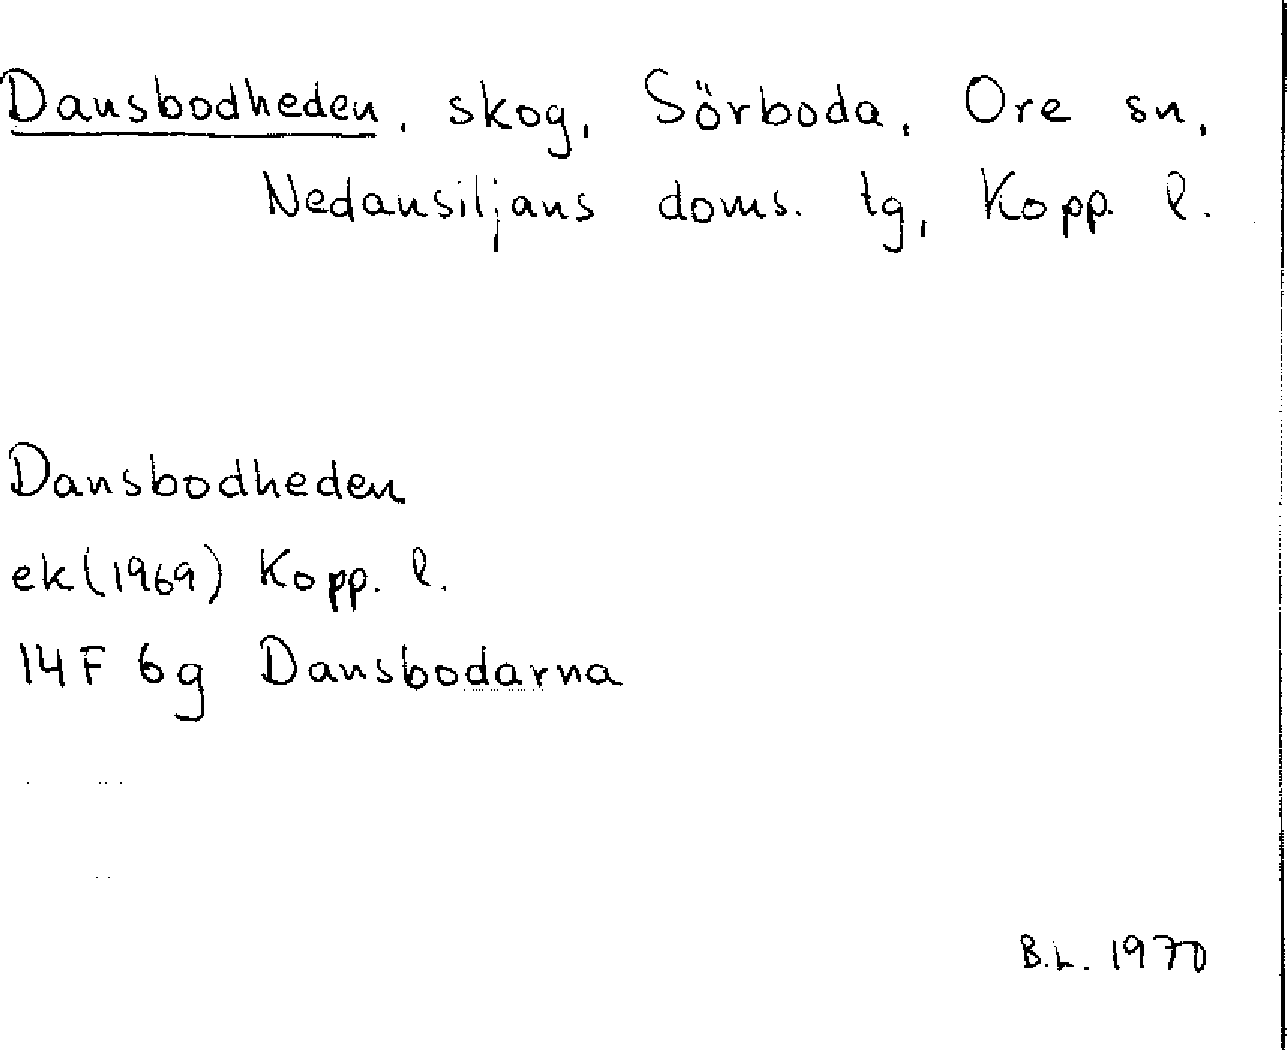 Dansbodheden, skog, Sörboda, Ore sn,
Nedansiljans doms. tg, Kopp. l.
Dansbodheden
ek (1969) Kopp. l.
14F 6g Dansbodarna
B.L. 1970